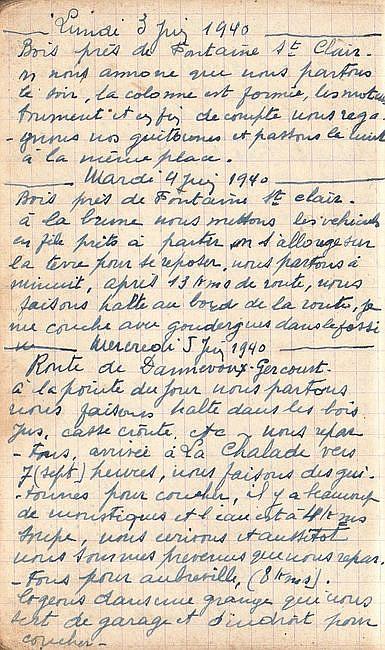 Lundi 3 Juin 1940
Bois près de Fontaine St Clair.
on nous annonce que nous partons
le soir, la colonne est formée, les moteurs
tournent et en fin de compte nous rega-
-gnons nos guitounes et passons la nuit
à la même place.
Mardi 4 Juin 1940
Bois près de Fontaine St Clair.
à la brume nous mettons les vehicules
en file prêts à partir, on s'allonge sur
la terre pour se reposer, nous partons à
minuit, après 13 kms de route, nous
faisons halte au bord de la route, je
me couche avec goudergues dans le fossé
Mercredi 5 Juin 1940
Route de Dannevoux-Gercourt.
à la pointe du jour nous partons
nous faisons halte dans les bois
jus, casse croûte, etc - nous repar-
-tons, arrivée à La Chalade vers
7 (sept) heures, nous faisons des gui-
-tounes pour coucher, il y a beaucoup
de moustiques et l'eau est à 4 kms
soupe, nous écrivons et aussitot
nous sommes prévenus que nous repar-
-tons pour aubreville, (8 kms).
logeons dans une grange qui nous
sert de garage et d'endroit pour
coucher-